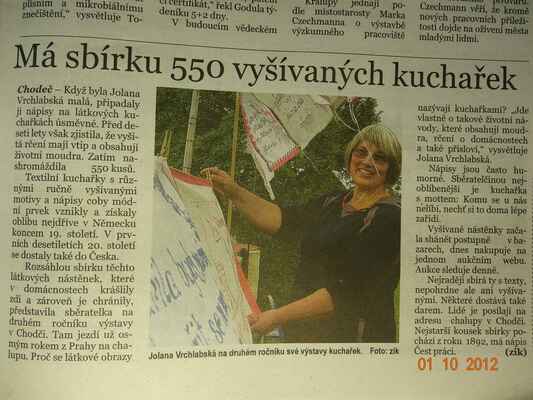 plísním a mikrobiálním
znečištění", vysvětluje To-
certifikát", řekl Godula tý-
deníku 5+2 dny.
V budoucím vědeckém
Kralupy jednají po-
dle místostarosty Marka
Czechmanna o výstavbě
výzkumného pracoviště
Czechmann věří, že kromě
nových pracovních příleži-
tostí dojde na oživení města
mladými lidmi.
Má sbírku 550 vyšívaných kuchařek
Chodeč – Když byla Jolana
Vrchlabská malá, připadaly
jí nápisy na látkových ku-
chařkách úsměvné. Před de-
seti lety však zjistila, že vyši-
tá rčení mají vtip a obsahují
životní moudra. Zatím na-
shromáždila 550 kusů.
Textilní kuchařky s růz-
nými ručně vyšívanými
motivy a nápisy coby mód-
ní prvek vznikly a získaly
oblibu nejdříve v Německu
koncem 19. století. V prv-
ních desetiletích 20. století
se dostaly také do Česka.
Rozsáhlou sbírku těchto
látkových nástěnek, které
v domácnostech krášlily
zdi a zároveň je chránily,
představila sběratelka na
druhém ročníku výstavy
v Chodči. Tam jezdí už os-
mým rokem z Prahy na cha-
lupu. Proč se látkové obrazy
Jolana Vrchlabská na druhém ročníku své výstavy kuchařek. Foto: zik
nazývají kuchařkami? „Jde
vlastně o takové životní ná-
vody, které obsahují moud-
ra, rčení o domácnostech
a také přísloví," vysvětluje
Jolana Vrchlabská.
Nápisy jsou často hu-
morné. Sběratelčinou nej-
oblíbenější je kuchařka
s mottem: Komu se u nás
nelíbí, nechť si to doma lépe
zařídí.
Vyšívané nástěnky zača-
la shánět postupně v ba-
zarech, dnes nakupuje na
jednom aukčním webu.
Aukce sleduje denně.
Nejraději sbírá ty s texty,
nepohrdne ale ani vyšíva-
nými. Některé dostává také
darem. Lidé je posílají na
adresu chalupy v Chodči.
Nejstarší kousek sbírky po-
chází z roku 1892, má nápis
Čest práci. (zik)
01 10 2012